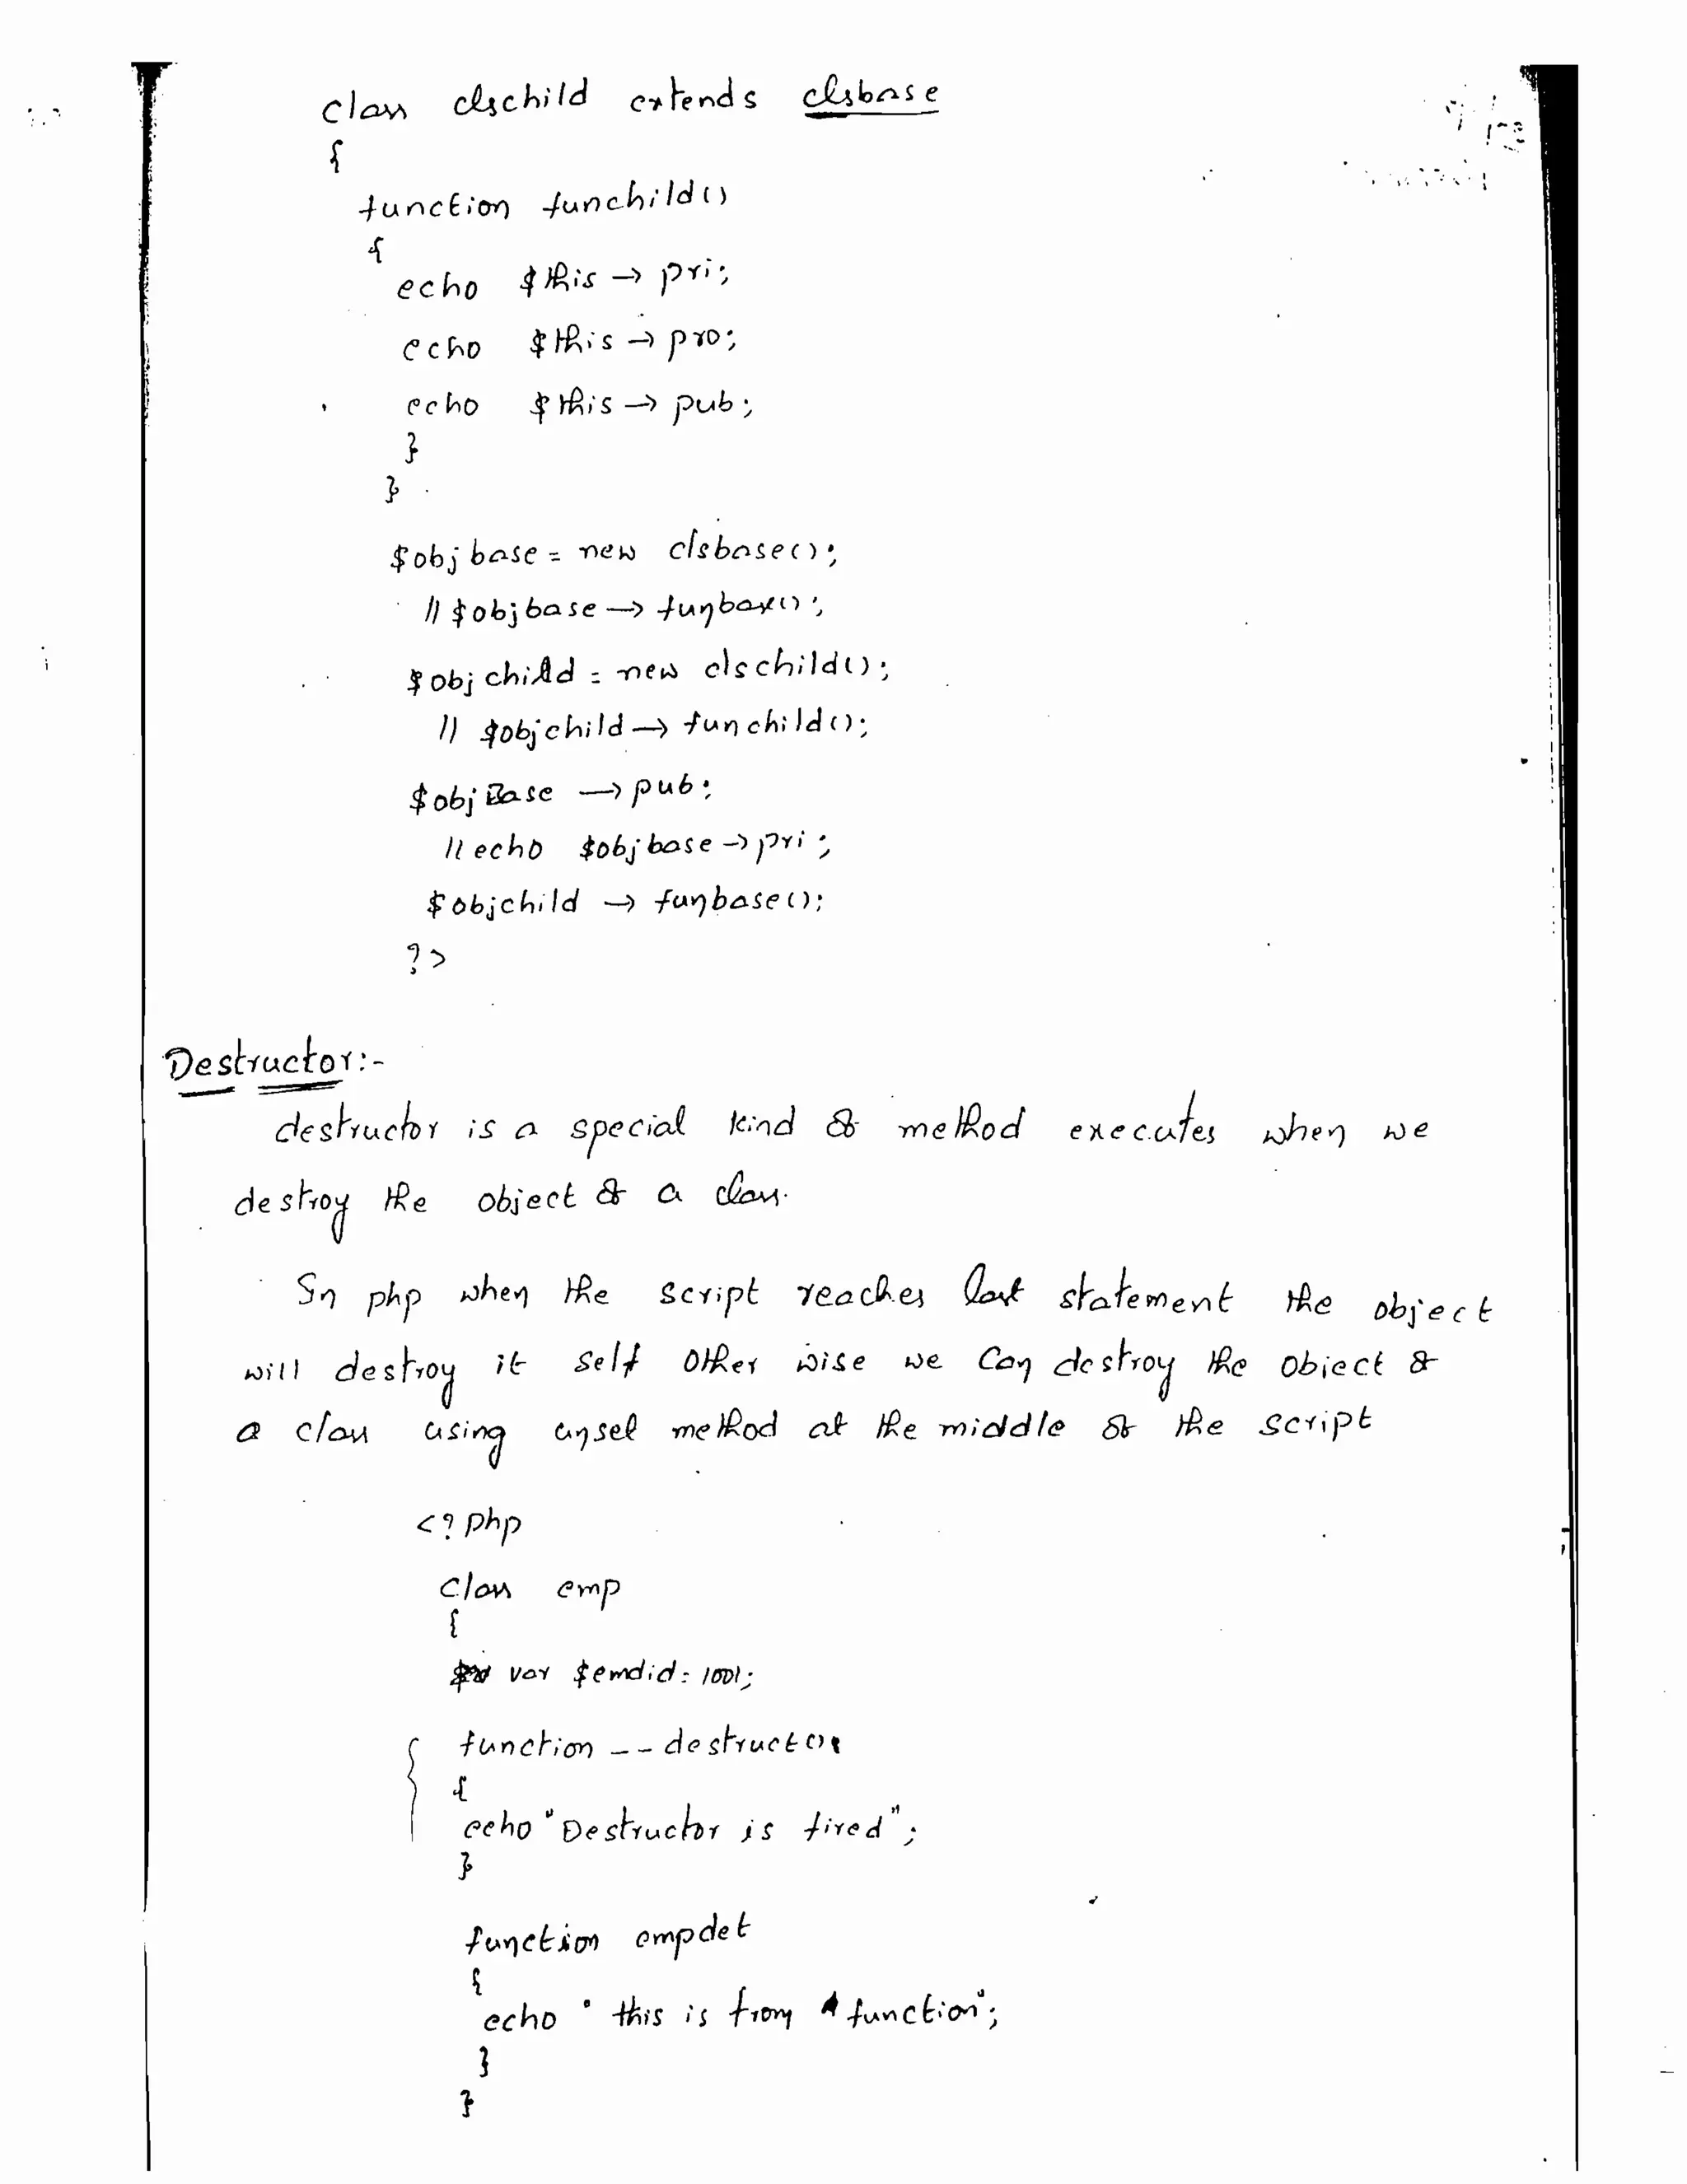 class clschild extends clsbase
{
function funchild()
{
echo $this → pri;
echo $this → pro;
echo $this → pub;
}
}
$objbase = new clsbase();
// $objbase → funbase();
$objchild = new clschild();
// $objchild → funchild();
$objBase → pub;
// echo $objbase → pri;
$objchild → funbase();
?>
Destructor:-
destructor is a special kind of method executes when we
destroy the object of a class.
In php when the script reaches last statement the object
will destroy it self other wise we can destroy the object of
a class using unset method at the middle of the script
<?php
class emp
{
var $emdid = 1001;
function __destruct()
{
echo "Destructor is fired";
}
function empdet
{
echo " this is from function";
}
}